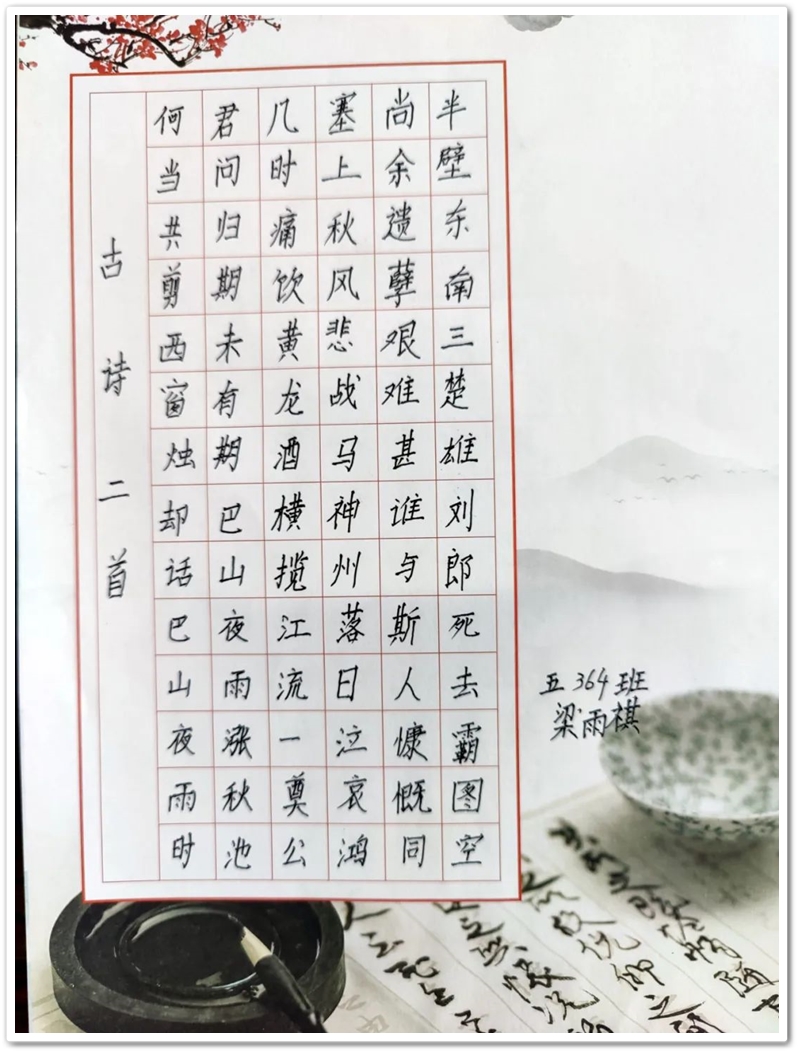 半壁东南三楚雄刘郎死去霸图空
尚余遗孽艰难甚谁与斯人慷慨同
塞上秋风悲战马神州落日泣哀鸿
几时痛饮黄龙酒横揽江流一奠公
君问归期未有期巴山夜雨涨秋池
何当共剪西窗烛却话巴山夜雨时
古诗二首
五364班
梁雨祺